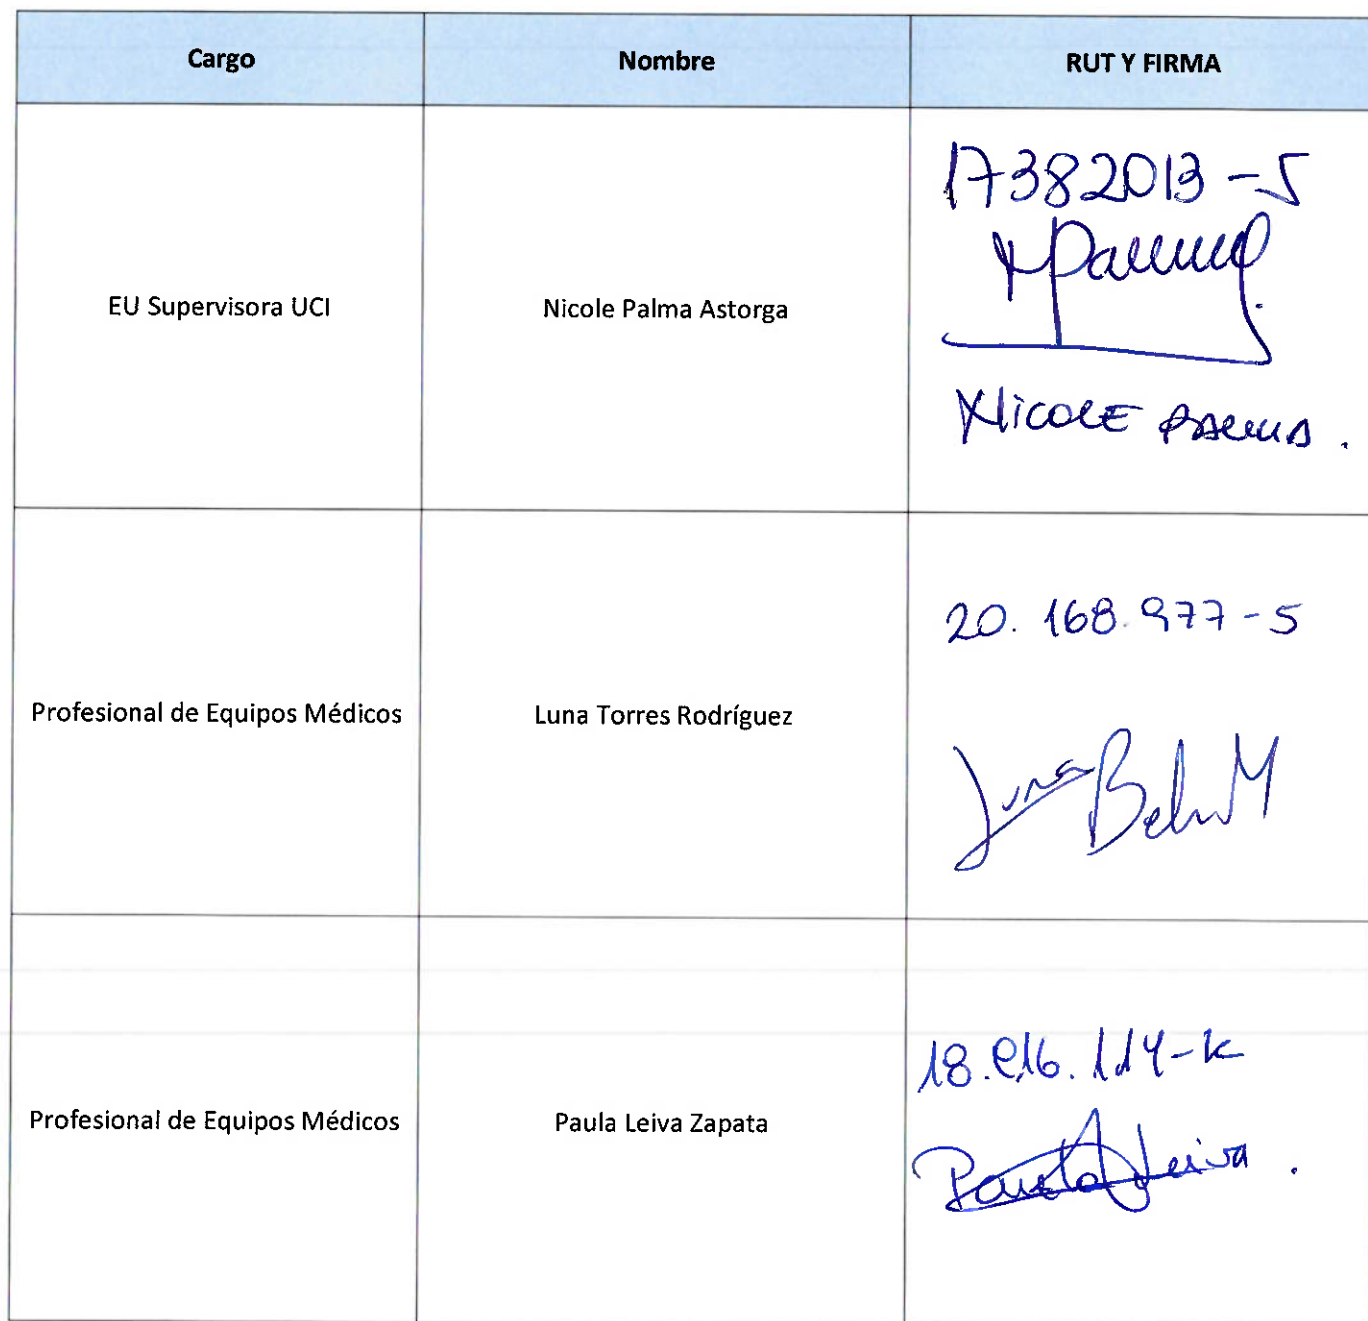 Cargo Nombre RUT Y FIRMA
EU Supervisora UCI Nicole Palma Astorga
17382013-5
NPalma
Nicole Palma.
Profesional de Equipos Médicos Luna Torres Rodríguez
20.168.977-5
Luna
Profesional de Equipos Médicos Paula Leiva Zapata
Paula Leiva.